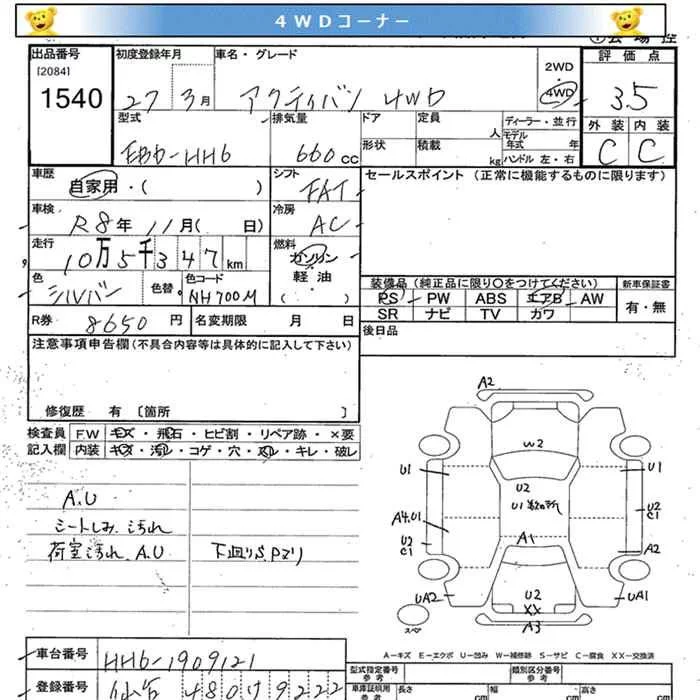 4WDコーナー
出品番号 初度登録年月 車名・グレード 2WD 評価点
[2084] 4WD
1540 27年 3月 アクティバン 4WD 3.5
型式 排気量 ドア 定員 人 ディーラー・並行 外装 内装
モデル年式 年
EBD-HH6 660cc 形状 積載 kg ハンドル 左・右 C C
車歴 シフト セールスポイント (正常に機能するものに限ります)
自家用・( ) FAT
車検 冷房
R8年 11月( 日) AC
走行 燃料
10万5千347km ガソリン
色 色替 色コード 軽油 装備品 (純正品に限り○をつけてください) 新車保証書
シルバー NH700M ( ) PS PW ABS エアB AW 有・無
R券 8650円 名変期限 月 日 SR ナビ TV カワ
注意事項申告欄 (不具合内容等は具体的に記入して下さい) 後日品
修復歴 有 [箇所 ]
検査員 FW キズ・飛石・ヒビ割・リペア跡・×要
記入欄 内装 キズ・汚れ・コゲ・穴・スレ・キレ・破レ
A2
W2
U1 U1
U2
U1 数ヶ所
U2
C1
A4.U1
A1
U2
C1
A2
UA2 U2 UA1
XX
スペア A3
A.U
シートしみ.汚れ
荷室汚れ.A.U 下廻りS.Pマリ
A-キズ E-エクボ U-凹み W-補修跡 S-サビ C-腐食 XX-交換済
車台番号 HH6-1909121 型式指定番号 類別区分番号
参考 参考
登録番号 仙台 480 9222 車庫証明用 長さ cm 幅 cm 高さ cm
参考